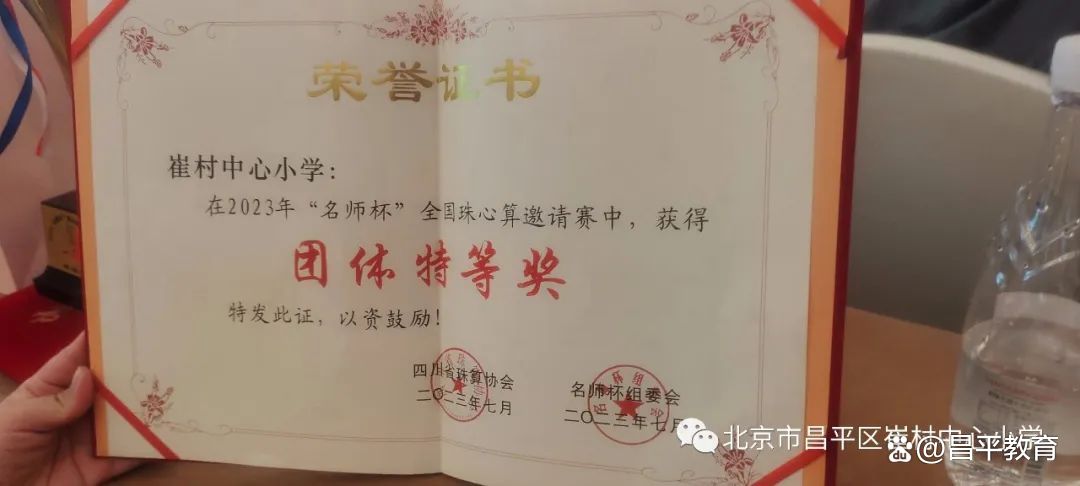 荣誉证书
崔村中心小学：
在2023年“名师杯”全国珠心算邀请赛中，获得
团体特等奖
特发此证，以资鼓励！
四川省珠算协会
二〇二三年七月
名师杯组委会
二〇二三年七月
北京市昌平区崔村中心小学
@昌平教育